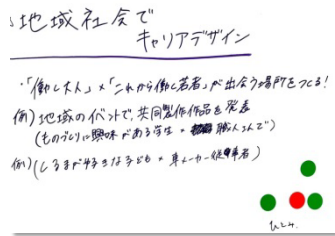 地域社会で
キャリアデザイン
・「働く大人」×「これから働く若者」が出会う場所をつくる!
例)地域のイベントで、共同製作作品を発表
(ものづくりに興味がある学生 × 職人さんで)
例)(くるまが好きな子ども × 車メーカー従事者)